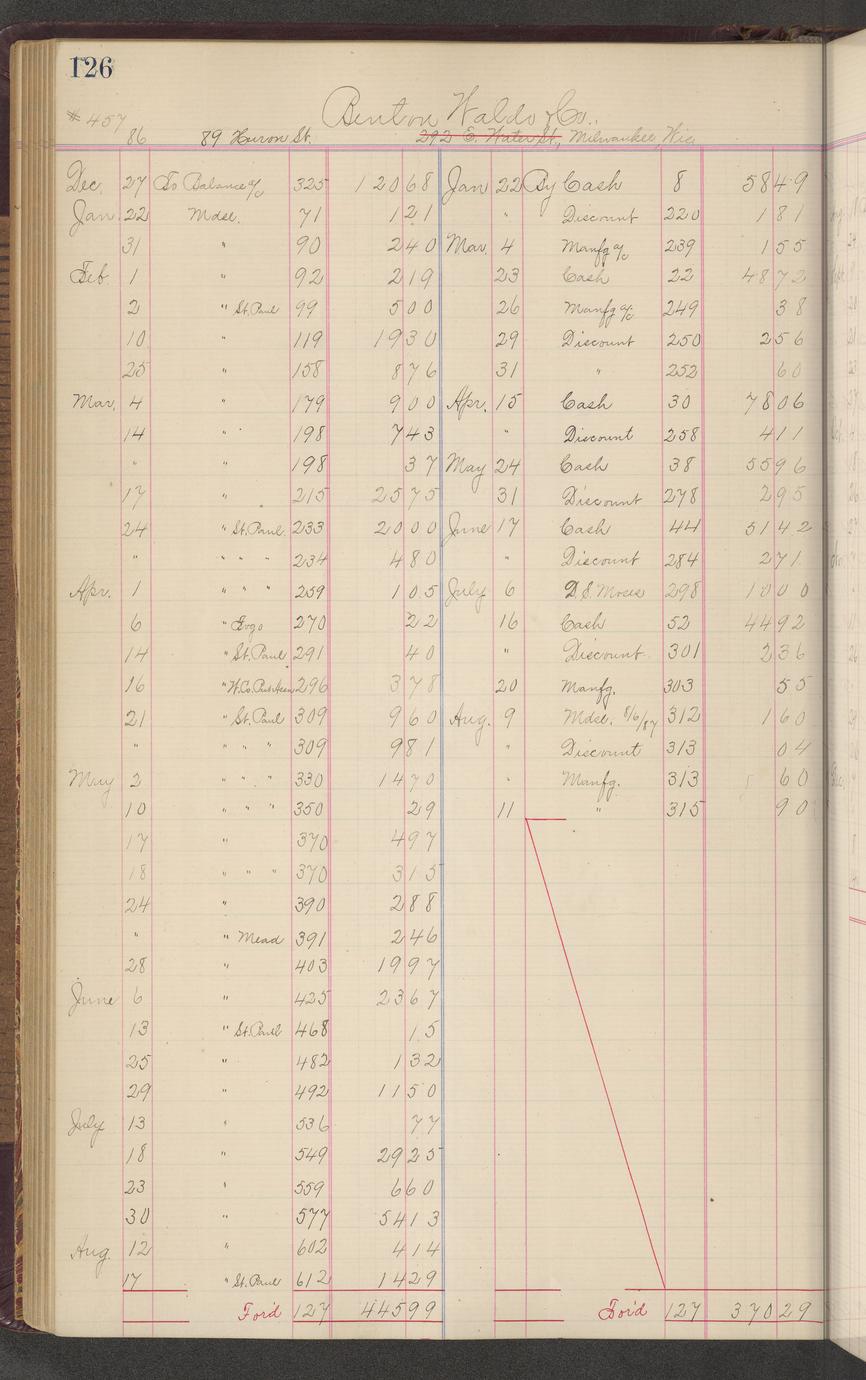 126
Benton Waldo & Co.
# 457
86 89 Huron St. 292 E. Water St., Milwaukee, Wis
Dec. 27 To Balance a/c 325 120 68 Jan 22 By Cash 8 58 49
Jan 22 Mdse. 71 1 21 " Discount 220 1 81
31 " 90 2 40 Mar. 4 Manfg a/c 239 1 55
Feb. 1 " 92 2 19 23 Cash 22 48 72
2 " St. Paul 99 5 00 26 Manfg a/c 249 38
10 " 119 19 30 29 Discount 250 2 56
25 " 158 8 76 31 " 252 60
Mar. 4 " 179 9 00 Apr. 15 Cash 30 78 06
14 " 198 7 43 " Discount 258 4 11
" " 198 37 May 24 Cash 38 55 96
17 " 215 25 75 31 Discount 278 2 95
24 " St. Paul 233 20 00 June 17 Cash 44 51 42
" " " " 234 4 80 " Discount 284 2 71
Apr. 1 " " " 259 1 05 July 6 D.S. Moses 298 10 00
6 " 270 22 16 Cash 52 44 92
14 " St. Paul 291 40 " Discount 301 2 36
16 " 296 3 78 20 Manfg. 303 55
21 " St. Paul 309 9 60 Aug. 9 Mdse. 8/6/87 312 1 60
" " " " 309 9 81 " Discount 313 04
May 2 " " " 330 14 70 " Manfg. 313 60
10 " " " 350 29 11 " 315 90
17 " 370 4 97
18 " " " 370 3 15
24 " 390 2 88
" " Mead 391 2 46
28 " 403 19 97
June 6 " 425 23 67
13 " St. Paul 468 15
25 " 482 1 32
29 " 492 11 50
July 13 " 536 77
18 " 549 29 25
23 " 559 6 60
30 " 577 54 13
Aug. 12 " 602 4 14
17 " St. Paul 612 14 29
For'd 127 445 99 For'd 127 370 29